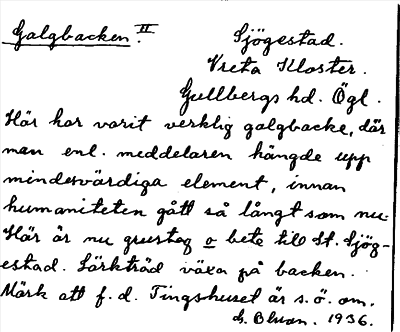 Galgbacken. II
Sjögestad.
Vreta Kloster.
Gullbergs hd. Ögl.
Här har varit verklig galgbacke, där
man enl. meddelaren hängde upp
mindervärdiga element, innan
humaniteten gått så långt som nu.
Här är nu grustag o bete till St. Sjög-
estad. Lärkträd växa på backen.
Märk att f. d. Tingshuset är s. ö. om.
1936.